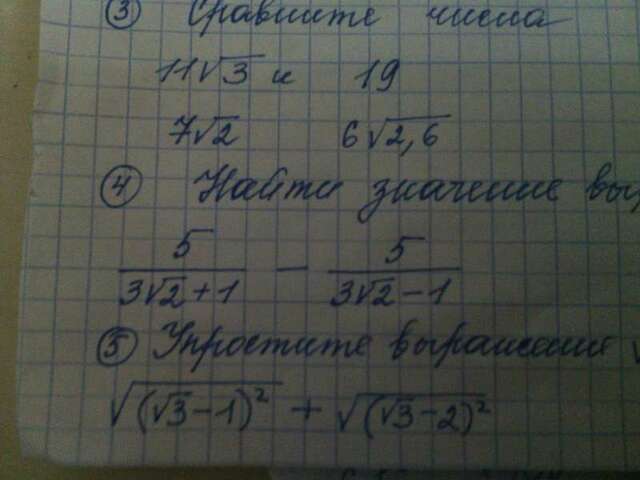 ③ Сравните числа
11√3 и 19
7√2 6√2,6
④ Найти значение выр
5/(3√2+1) − 5/(3√2−1)
⑤ Упростите выражение
√(√3−1)² + √(√3−2)²